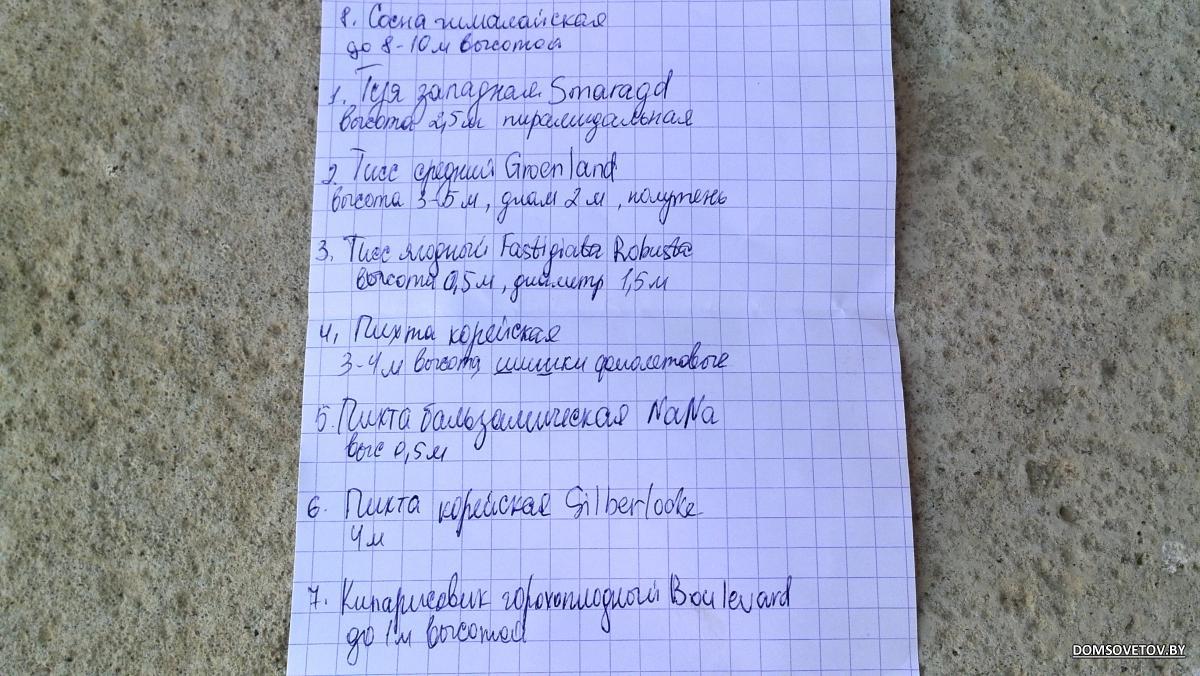 8. Сосна гималайская
до 8-10м высотой
1. Туя западная Smaragd
высота 2,5м пирамидальная
2. Тисс средний Groenland
высота 3-5м, диам 2м, полутень
3. Тисс ягодный Fastigiata Robusta
высота 0,5м, диаметр 1,5м
4, Пихта корейская
3-4м высота, шишки фиолетовые
5. Пихта бальзамическая NaNa
выс 0,5м
6. Пихта корейская Silberlooke
4м
7. Кипарисовик горохоплодный Boulevard
до 1м высотой
DOMSOVETOV.BY